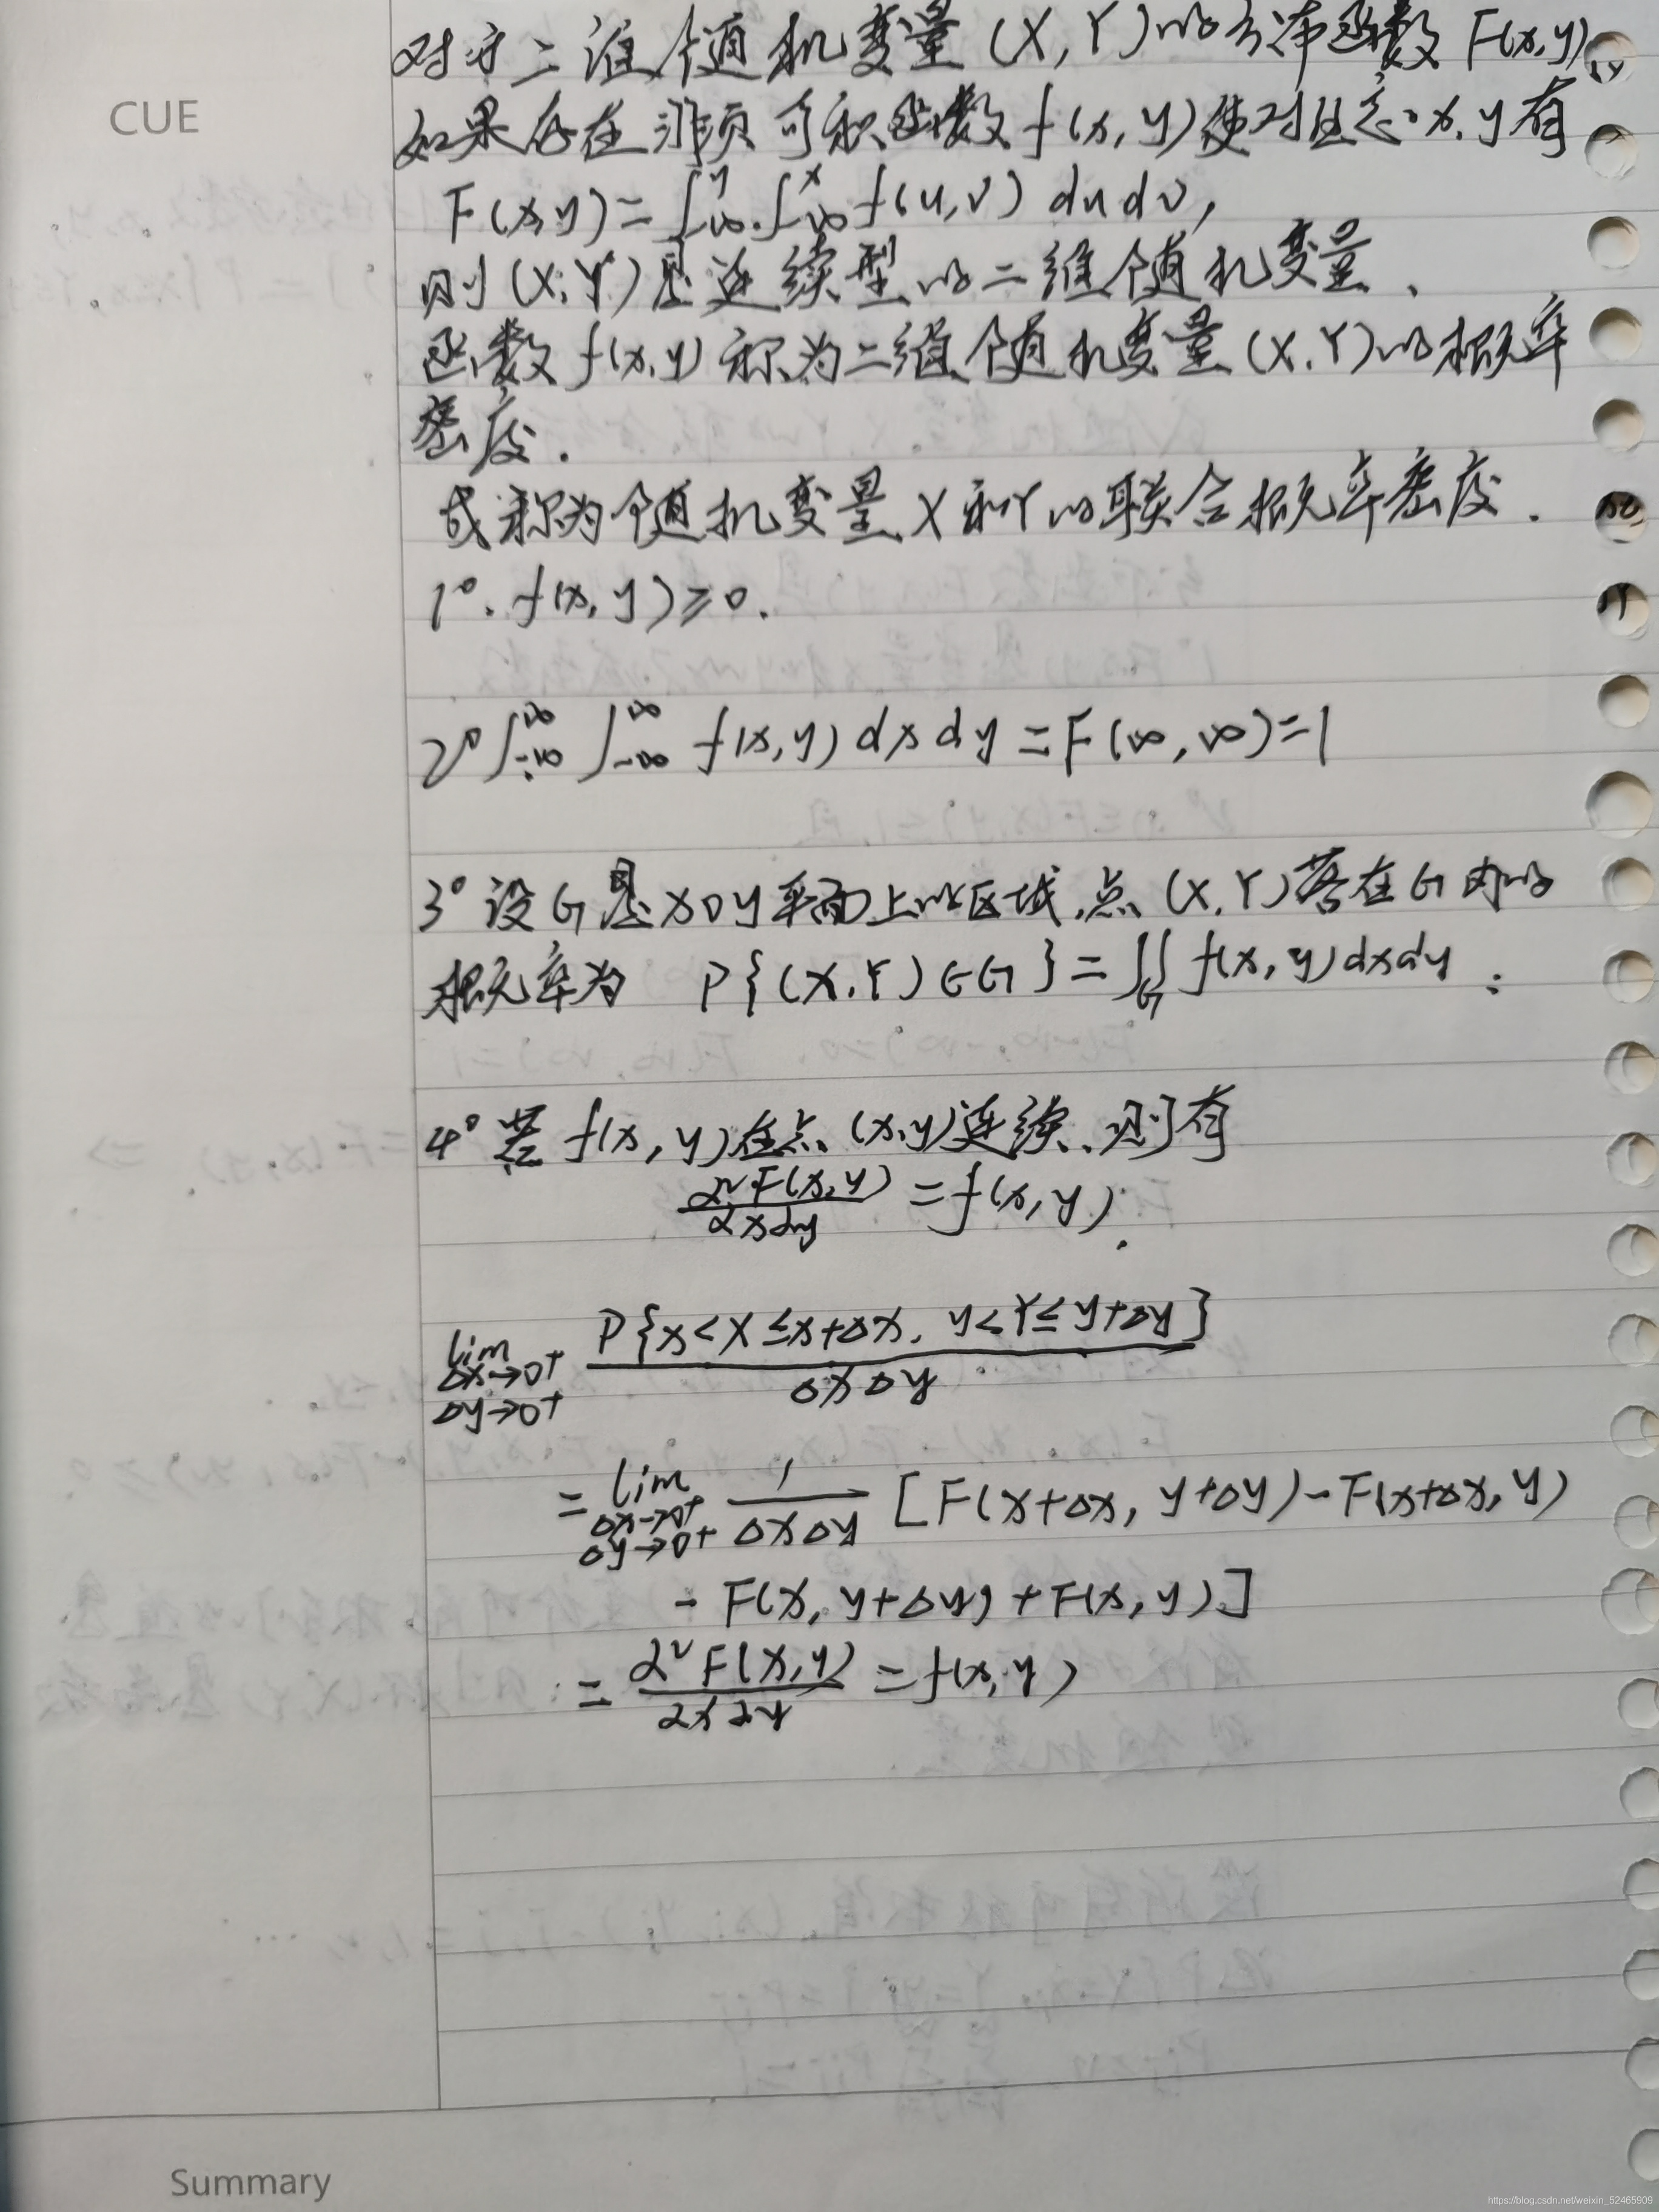 对于二维随机变量(X,Y)的分布函数F(x,y),
CUE
如果存在非负可积函数f(x,y)使对任意x,y有
F(x,y)=∫_{-∞}^{y}∫_{-∞}^{x} f(u,v) du dv,
则(X,Y)是连续型的二维随机变量、
函数f(x,y)称为二维随机变量(X,Y)的概率
密度.
或称为随机变量X和Y的联合概率密度.
1°. f(x,y)≥0.
2° ∫_{-∞}^{∞}∫_{-∞}^{∞} f(x,y) dx dy = F(∞,∞)=1
3° 设G是xOy平面上的区域,点(X,Y)落在G内的
概率为 P{(X,Y)∈G}=∬_G f(x,y)dxdy.
4° 若f(x,y)在点(x,y)连续,则有
∂²F(x,y)/∂x∂y = f(x,y).
lim_{Δx→0+ Δy→0+} P{x<X≤x+Δx, y<Y≤y+Δy}/ΔxΔy
= lim_{Δx→0+ Δy→0+} 1/ΔxΔy [F(x+Δx, y+Δy)-F(x+Δx,y)
- F(x, y+Δy)+F(x,y)]
= ∂²F(x,y)/∂x∂y = f(x,y)
Summary
https://blog.csdn.net/weixin_52465909